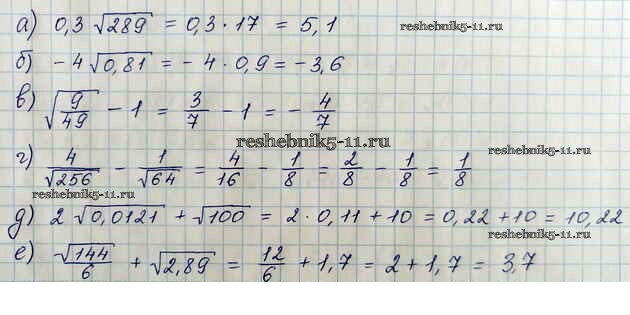 а) 0,3 √289 = 0,3 · 17 = 5,1 reshebnik5-11.ru
б) −4 √0,81 = −4 · 0,9 = −3,6
в) √(9/49) − 1 = 3/7 − 1 = −4/7
reshebnik5-11.ru
г) 4/√256 − 1/√64 = 4/16 − 1/8 = 2/8 − 1/8 = 1/8 reshebnik5-11.ru
reshebnik5-11.ru
д) 2 √0,0121 + √100 = 2 · 0,11 + 10 = 0,22 + 10 = 10,22
reshebnik5-11.ru
е) √144/6 + √2,89 = 12/6 + 1,7 = 2 + 1,7 = 3,7